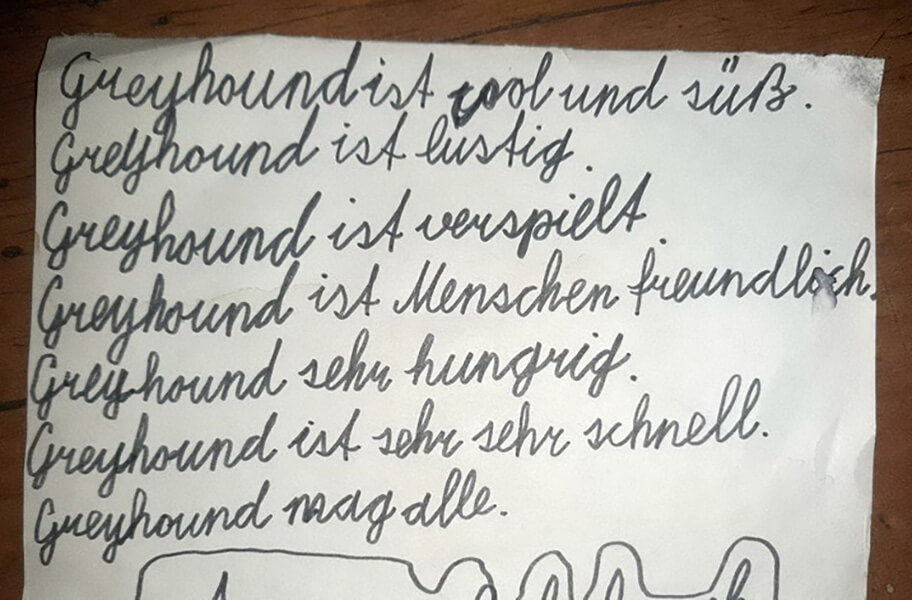 Greyhound ist cool und süß.
Greyhound ist lustig.
Greyhound ist verspielt.
Greyhound ist Menschen freundlich.
Greyhound sehr hungrig.
Greyhound ist sehr sehr schnell.
Greyhound mag alle.